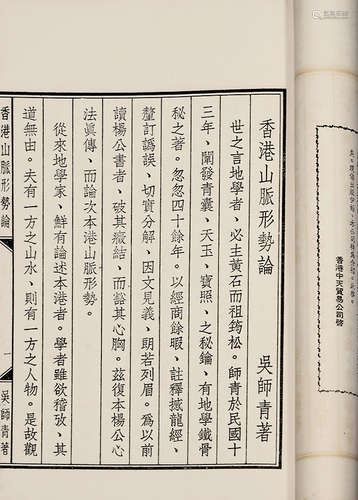 香港山脈形勢論
吳師青著
世之言地學者，必主黃石而祖筠松。師青於民國十
三年，闡發青囊、天玉、寶照、之秘鑰，有地學鐵骨
秘之著。忽忽四十餘年。以經商餘暇，註釋撼龍經、
釐訂譌誤，切實分解，因文見義，朗若列眉。爲以前
讀楊公書者，破其癥結，而豁其心胸。茲復本楊公心
法眞傳，而論次本港山脈形勢。
從來地學家，鮮有論述本港者。學者雖欲稽攷，其
道無由。夫有一方之山水，則有一方之人物。是故觀
香港山脈形勢論
一
吳師青著
香港中天貿易公司啓